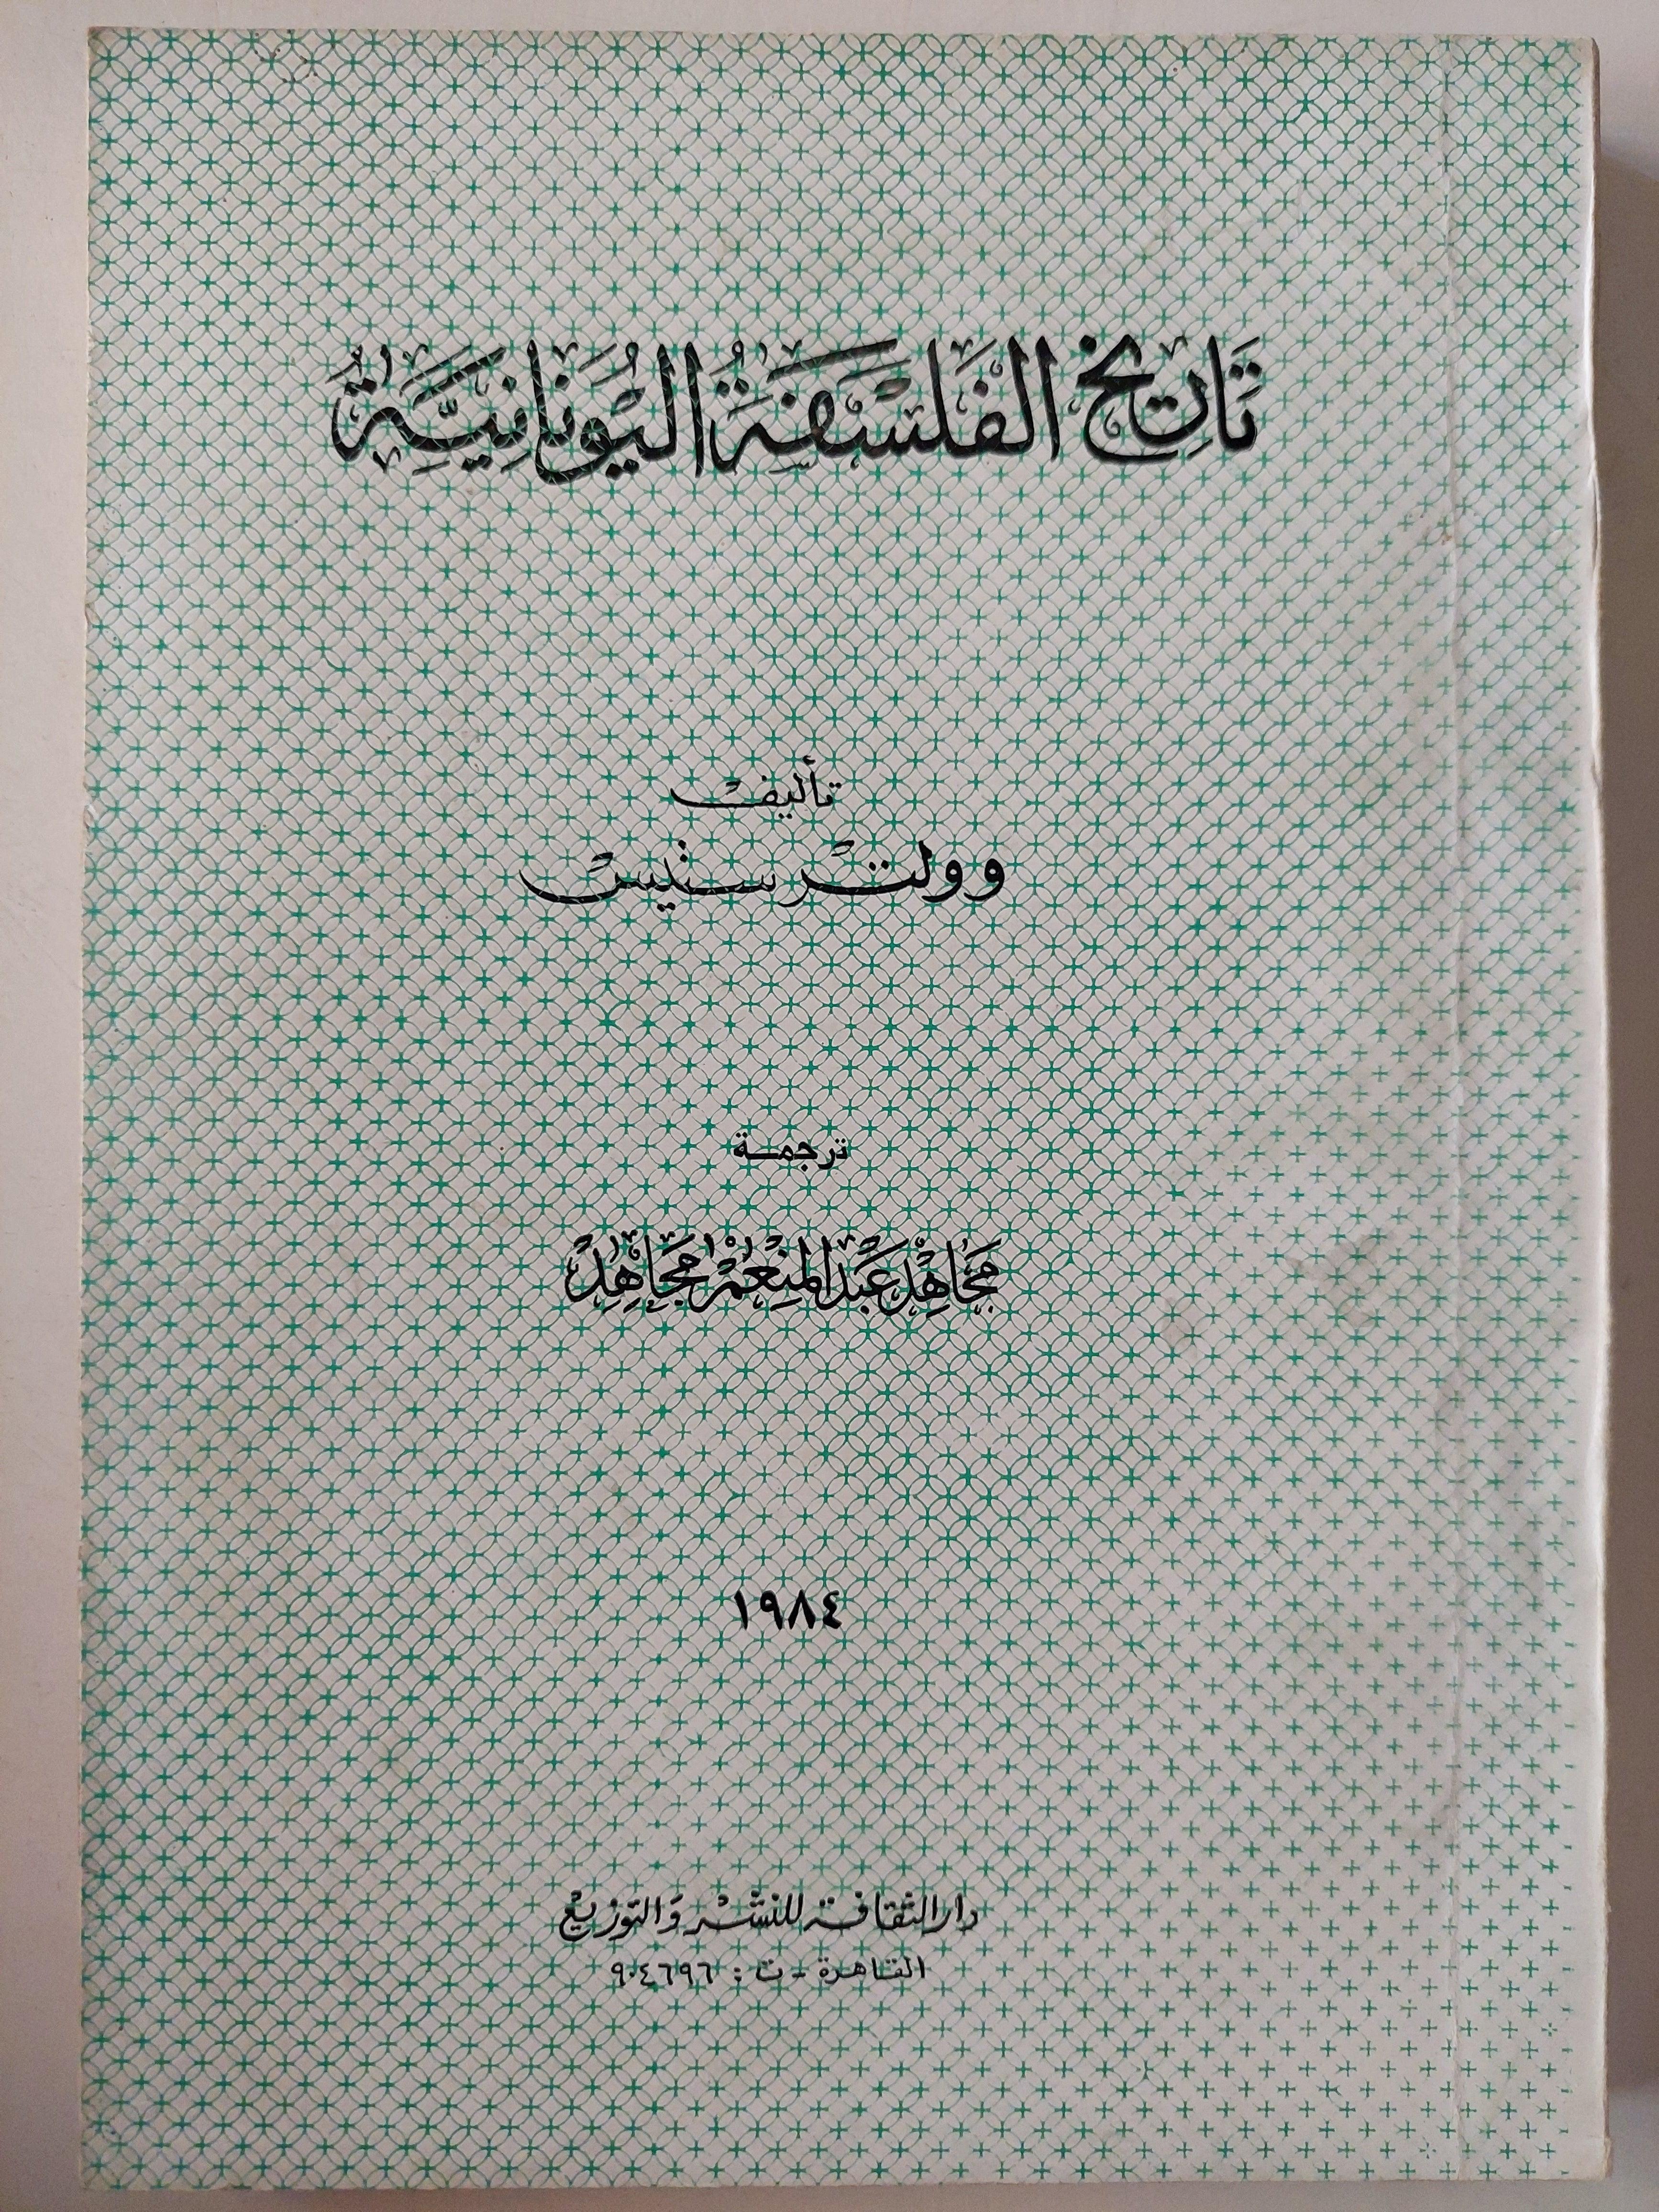 تَارِيخ الفَلسَفَةُ اليُونَانِيَّةُ
تأليف
وولتر ستيس
ترجمة
مُجَاهِد عَبْد المنْعِمْ مُجَاهِدْ
١٩٨٤
دار الثقافة للنشر وَالتوزيع
القاهرة - ت : ٩٠٤٦٩٦